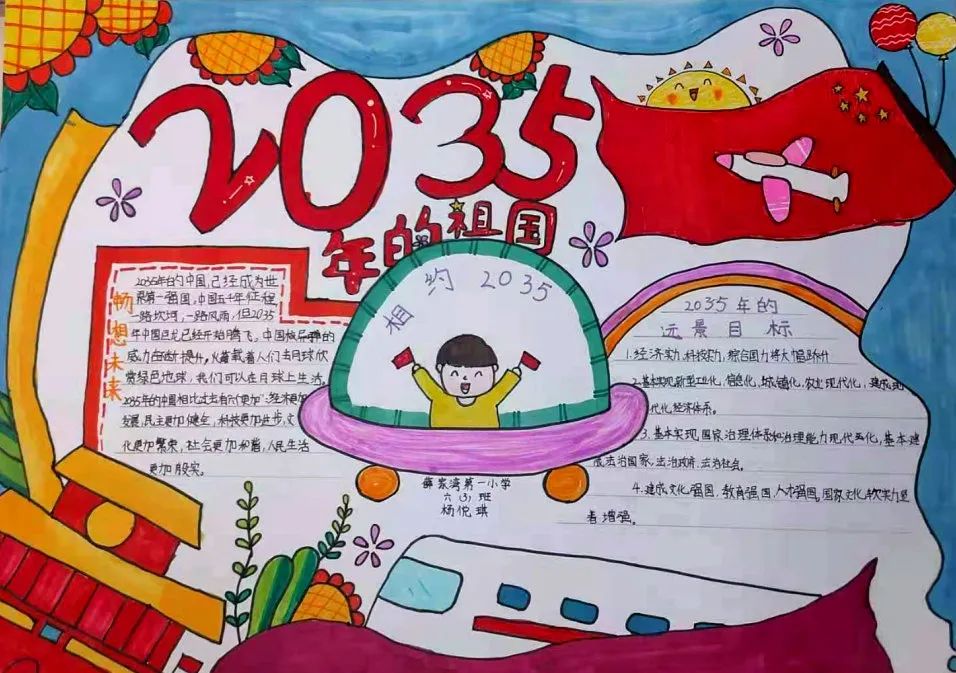 2035
年的祖国
相约2035
畅想未来
2035年的中国,已经成为世
界第一强国,中国五十年征程,
一路坎坷,一路风雨,但2035
年中国巨龙已经开始腾飞。中国
威力在不断提升。火箭载着人们去月球欣
赏绿色地球,我们可以在月球上生活。
2035年的中国相比过去有了更加:经济更加
发展,民主更加健全,科技更加进步,文
化更加繁荣,社会更加和谐,人民生活
更加殷实。
2035年的
远景目标
1.经济实力,科技实力,综合国力将大幅跃升
2.基本实现新型工业化,信息化,城镇化,农业现代化,建成现
代化经济体系。
3.基本实现国家治理体系和治理能力现代化,基本建
成法治国家,法治政府,法治社会。
4.建成文化强国,教育强国,人才强国,国家文化软实力显
着增强。
薛家湾第一小学
六(3)班
杨悦琪